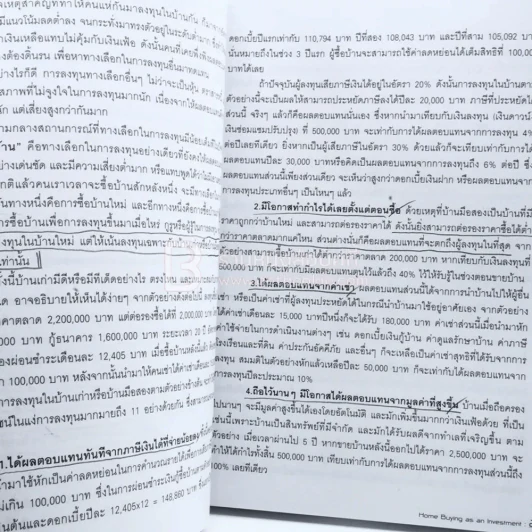 เหตุสำคัญที่ทำให้คนแห่กันมาลงทุนในบ้านกัน
มีแนวโน้มลดต่ำลง จนกระทั่งมาทรงตัวอยู่ในระดับต่ำมาก
เงินเหลือแทบไม่คุ้มกับเงินเฟ้อ ดังนั้นคนที่เคยพึ่งพิง
ต้องดิ้นรน เพื่อหาทางเลือกในการลงทุนอื่นมาทดแทน
อย่างไรก็ดี การลงทุนทางเลือกอื่นๆ ไม่ว่าจะเป็นหุ้น
สภาพที่ไม่จูงใจในการลงทุนมากนัก เนื่องจากให้ผลตอบแทน
นัก แต่เสี่ยงสูงกว่ากันมาก
ามกลางสถานการณ์ที่ทางเลือกในการลงทุนมีน้อย
้าน" คือทางเลือกในการลงทุนอย่างเดียวที่ยังคงให้ผลตอบแทน
อย่างเด่นชัด และมีความเสี่ยงต่ำมาก หรือแทบพูดได้ว่าไม่
กติแล้วคนเราเวลาจะซื้อบ้านสักหลังหนึ่ง จะมีทางเลือก
นทางหนึ่งคือการซื้อบ้านใหม่ และอีกทางหนึ่งคือการซื้อ
การซื้อบ้านเพื่อการลงทุนขึ้นมาเมื่อไหร่ กูรูหรือผู้รู้ในวงการ
ลงทุนในบ้านใหม่ แต่ให้เน้นลงทุนเฉพาะกับบ้านเก่าหรือบ้าน
เท่านั้น
งนี้บ้านเก่ามีดีหรือมีทีเด็ดอย่างไร ตรงไหน
ด อาจอธิบายให้เห็นได้ง่ายๆ จากตัวอย่างดังต่อไปนี้
คาตลาด 2,200,000 บาท แต่ต่อรองซื้อได้ที่ 2,000,000
บาท กู้ธนาคาร 1,600,000 บาท ระยะเวลา 20 ปี
องผ่อนชำระเดือนละ 12,405 บาท เมื่อซื้อบ้านหลังนี้แล้ว
า 100,000 บาท หลังจากนั้นนำมาให้คนเช่าได้ค่าเช่าเดือนละ
การลงทุนในบ้านเก่าหรือบ้านมือสองตามตัวอย่างข้างต้น
ชน์ในแง่การลงทุนมากมายถึง 11 อย่างด้วยกัน ซึ่งสามารถ
1.ได้ผลตอบแทนทันทีจากภาษีเงินได้ที่จ่ายน้อยลง
นำมาใช้หักเป็นค่าลดหย่อนในการคำนวณรายได้เพื่อการเสีย
ไม่เกิน 100,000 บาท ซึ่งในการผ่อนชำระเงินกู้ซื้อบ้าน
ต้นและดอกเบี้ยปีละ 12,405x12 = 148,860 บาท
ดอกเบี้ยปีแรกเท่ากับ 110,794 บาท ปีที่สอง 108,043 บาท และปีที่สาม 105,092 บาท
นั่นหมายถึงในช่วง 3 ปีแรก ผู้ซื้อบ้านจะสามารถใช้ค่าลดหย่อนได้เต็มสิทธิที่ 100,000
บาทได้เลย
ถ้าปัจจุบันผู้ลงทุนเสียภาษีเงินได้อยู่ในอัตรา 20% ดังนั้นการลงทุนในบ้าน
ตัวอย่างนี้จะเป็นผลให้สามารถประหยัดภาษีลงได้ปีละ 20,000 บาท ภาษีที่ประหยัดได้
ส่วนนี้ จริงๆ แล้วก็คือผลตอบแทนนั่นเอง ซึ่งหากนำมาเทียบกับเงินลงทุน (เงินดาวน์
เงินซ่อมแซมปรับปรุง) ที่ 500,000 บาท จะเท่ากับการได้ผลตอบแทนจากการลงทุน 4%
ต่อปีเลยทีเดียว ยิ่งหากเป็นผู้เสียภาษีในอัตรา 30% ด้วยแล้วก็จะเทียบเท่ากับการได้
ผลตอบแทนปีละ 30,000 บาทหรือคิดเป็นผลตอบแทนจากการลงทุนถึง 6% ต่อปี ซึ่ง
ผลตอบแทนส่วนนี้เพียงส่วนเดียว จะเห็นว่าสูงกว่าดอกเบี้ยเงินฝาก หรือผลตอบแทนจาก
การลงทุนประเภทอื่นๆ เป็นไหนๆ แล้ว
2.มีโอกาสทำกำไรได้เลยตั้งแต่ตอนซื้อ ด้วยเหตุที่บ้านมือสองเป็นบ้านที่มี
ราคาถูกกว่าบ้านใหม่ และสามารถต่อรองราคาได้ ดังนั้นยิ่งสามารถต่อรองราคาซื้อได้ต่ำ
กว่าราคาตลาดมากแค่ไหน ส่วนต่างนั้นก็คือผลตอบแทนที่จะตกถึงผู้ลงทุนในที่สุด จาก
ตัวอย่างสามารถซื้อบ้านได้ต่ำกว่าราคาตลาด 200,000 บาท หากเทียบกับเงินลงทุนที่
500,000 บาท ก็จะเท่ากับมีผลตอบแทนตุนไว้แล้วถึง 40% ไว้ให้รับรู้ในช่วงตอนขายบ้าน
3.ได้ผลตอบแทนจากค่าเช่า ผลตอบแทนส่วนนี้ได้จากการนำบ้านไปให้ผู้อื่น
เช่า หรือเป็นค่าเช่าที่ผู้ลงทุนประหยัดได้ในกรณีนำบ้านมาใช้อยู่อาศัยเอง จากตัวอย่าง
ได้ค่าเช่าเดือนละ 15,000 บาทปีหนึ่งก็จะได้รับ 180,000 บาท ค่าเช่าส่วนนี้เมื่อนำมาหัก
ค่าใช้จ่ายในการดำเนินงานต่างๆ เช่น ดอกเบี้ยเงินกู้บ้าน ค่าดูแลรักษาบ้าน ค่าภาษี
โรงเรือนและที่ดิน ค่าประกันอัคคีภัย และอื่นๆ ก็จะเหลือเป็นค่าเช่าสุทธิที่ได้รับจากการ
ลงทุน สมมติในตัวอย่างหักแล้วเหลือปีละ 50,000 บาท ก็จะเท่ากับได้ผลตอบแทนจาก
การลงทุนปีละประมาณ 10%
4.ถือไว้นานๆ มีโอกาสได้ผลตอบแทนจากมูลค่าที่สูงขึ้น บ้านเมื่อถือครอง
ไปนานๆ จะมีมูลค่าสูงขึ้นได้เองโดยอัตโนมัติ และมักเพิ่มขึ้นมากกว่าเงินเฟ้อด้วย ที่เป็น
เช่นนี้เพราะบ้านเป็นสินทรัพย์ที่มีจำกัด และมักได้รับผลดีจากทำเลที่เจริญขึ้น ตาม
ตัวอย่าง เมื่อเวลาผ่านไป 5 ปี หากขายบ้านหลังนี้ออกไปได้ราคา 2,500,000 บาท จะ
ทำให้ได้กำไรทั้งสิ้น 500,000 บาท เทียบเท่ากับการได้ผลตอบแทนจากการลงทุนส่วนนี้ถึง
100% เลยทีเดียว
Home Buying as an Investment